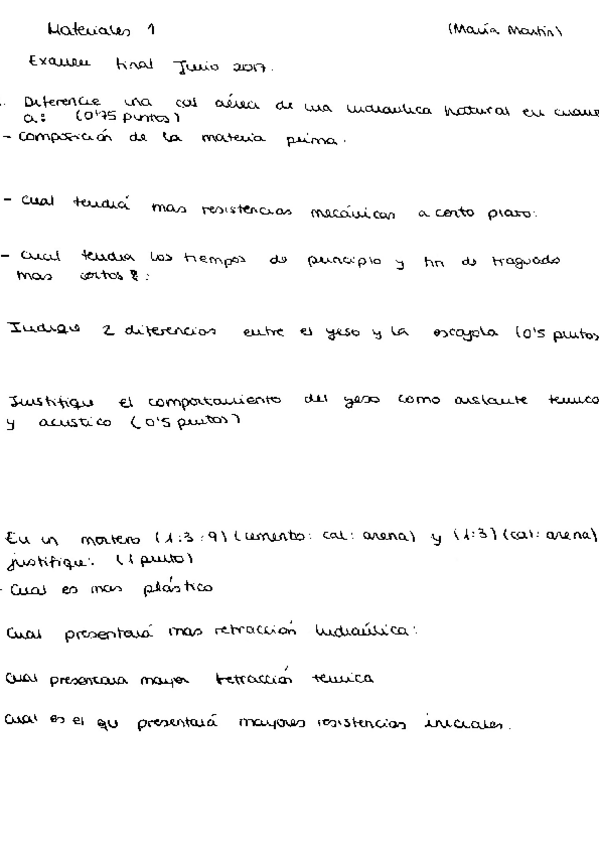 Materiales 1 (María Martín)
Examen final Junio 2017.
. Diferencie una cal aérea de una hidraúlica natural en cuant
a: (0'75 puntos)
- composición de la materia prima.
- Cual tendrá mas resistencias mecánicas a corto plazo:
- Cual tendra los tiempos de principio y fin de fraguado
mas cortos :
Indique 2 diferencias entre el yeso y la escayola (0'5 puntos
Justifique el comportamiento del yeso como aislante termico
y acustico (0'5 puntos)
En un mortero (1:3:9) (cemento: cal: arena) y (1:3) (cal: arena)
justifique: (1 punto)
- Cual es mas plástico
Cual presentará mas retracción hidraúlica:
Cual presentara mayor retracción termica
Cual es el qu presentará mayores resistencias iniciales.